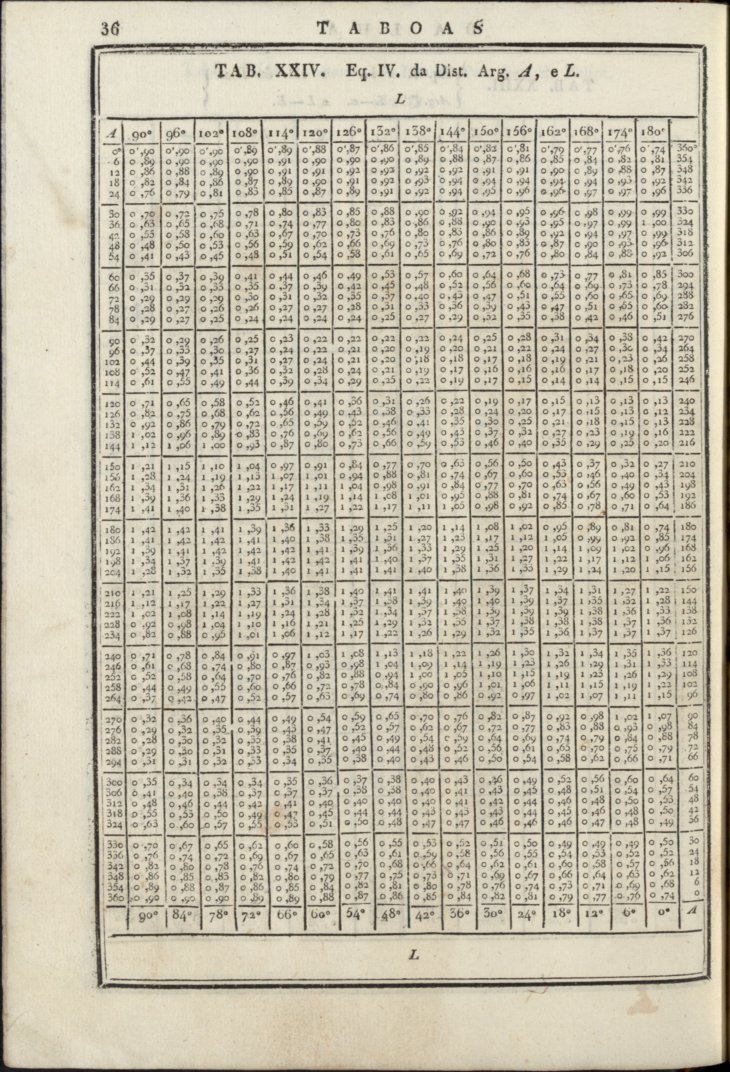 36 TABOAS
TAB. XXIV. Eq. IV. da Dist. Arg. A, e L.
L
A 90° 96° 102° 108° 114° 120° 126° 132° 138° 144° 150° 156° 162° 168° 174° 180°
0° 0',90 0',90 0',90 0',89 0',89 0',88 0',87 0',86 0',85 0',84 0',82 0',81 0',79 0',77 0',76 0',74 360°
6 0,89 0,90 0,90 0,90 0,91 0,90 0,90 0,90 0,89 0,88 0,87 0,86 0,85 0,84 0,82 0,81 354
12 0,86 0,88 0,89 0,90 0,91 0,91 0,92 0,92 0,92 0,92 0,91 0,91 0,90 0,89 0,88 0,87 348
18 0,82 0,84 0,86 0,87 0,89 0,90 0,91 0,92 0,93 0,94 0,94 0,94 0,94 0,94 0,93 0,92 342
24 0,76 0,79 0,81 0,83 0,85 0,87 0,89 0,91 0,92 0,94 0,95 0,96 0,96 0,97 0,97 0,96 336
30 0,70 0,72 0,75 0,78 0,80 0,83 0,85 0,88 0,90 0,92 0,94 0,95 0,96 0,98 0,99 0,99 330
36 0,63 0,65 0,68 0,71 0,74 0,77 0,80 0,83 0,86 0,88 0,90 0,93 0,95 0,97 0,99 1,00 324
42 0,55 0,58 0,60 0,63 0,67 0,70 0,73 0,76 0,80 0,83 0,86 0,89 0,92 0,94 0,97 0,99 318
48 0,48 0,50 0,53 0,56 0,59 0,62 0,66 0,69 0,73 0,76 0,80 0,83 0,87 0,90 0,93 0,96 312
54 0,41 0,43 0,45 0,48 0,51 0,54 0,58 0,61 0,65 0,69 0,72 0,76 0,80 0,84 0,88 0,92 306
60 0,35 0,37 0,39 0,41 0,44 0,46 0,49 0,53 0,57 0,60 0,64 0,68 0,73 0,77 0,81 0,85 300
66 0,31 0,32 0,33 0,35 0,37 0,39 0,42 0,45 0,48 0,52 0,56 0,60 0,64 0,69 0,73 0,78 294
72 0,29 0,29 0,29 0,30 0,31 0,32 0,35 0,37 0,40 0,43 0,47 0,51 0,55 0,60 0,65 0,69 288
78 0,28 0,27 0,26 0,26 0,27 0,27 0,28 0,31 0,33 0,36 0,39 0,43 0,47 0,51 0,55 0,60 282
84 0,29 0,27 0,25 0,24 0,24 0,24 0,24 0,25 0,27 0,29 0,32 0,35 0,38 0,42 0,46 0,51 276
90 0,32 0,29 0,26 0,25 0,23 0,22 0,22 0,22 0,22 0,24 0,25 0,28 0,31 0,34 0,38 0,42 270
96 0,37 0,33 0,30 0,27 0,24 0,22 0,21 0,20 0,19 0,20 0,21 0,22 0,24 0,27 0,30 0,34 264
102 0,44 0,39 0,35 0,31 0,27 0,24 0,21 0,20 0,18 0,18 0,17 0,18 0,19 0,21 0,23 0,26 258
108 0,52 0,47 0,41 0,36 0,32 0,28 0,24 0,21 0,19 0,17 0,16 0,16 0,16 0,17 0,18 0,20 252
114 0,61 0,55 0,49 0,44 0,39 0,34 0,29 0,25 0,22 0,19 0,17 0,15 0,14 0,14 0,15 0,15 246
120 0,71 0,65 0,58 0,52 0,46 0,41 0,36 0,31 0,26 0,22 0,19 0,17 0,15 0,13 0,13 0,13 240
126 0,82 0,75 0,68 0,62 0,56 0,49 0,43 0,38 0,33 0,28 0,24 0,20 0,17 0,15 0,13 0,12 234
132 0,92 0,86 0,79 0,72 0,65 0,59 0,52 0,46 0,41 0,35 0,30 0,25 0,21 0,18 0,15 0,13 228
138 1,02 0,96 0,89 0,83 0,76 0,69 0,62 0,56 0,49 0,43 0,37 0,32 0,27 0,23 0,19 0,16 222
144 1,12 1,06 1,00 0,93 0,87 0,80 0,73 0,66 0,59 0,53 0,46 0,40 0,35 0,29 0,25 0,20 216
150 1,21 1,15 1,10 1,04 0,97 0,91 0,84 0,77 0,70 0,63 0,56 0,50 0,43 0,37 0,32 0,27 210
156 1,28 1,24 1,19 1,13 1,07 1,01 0,94 0,88 0,81 0,74 0,67 0,60 0,53 0,46 0,40 0,34 204
162 1,34 1,31 1,26 1,22 1,17 1,11 1,04 0,98 0,91 0,84 0,77 0,70 0,63 0,56 0,49 0,43 198
168 1,39 1,36 1,33 1,29 1,24 1,19 1,14 1,08 1,01 0,95 0,88 0,81 0,74 0,67 0,60 0,53 192
174 1,41 1,40 1,38 1,35 1,31 1,27 1,22 1,17 1,11 1,05 0,98 0,92 0,85 0,78 0,71 0,64 186
180 1,42 1,42 1,41 1,39 1,36 1,33 1,29 1,25 1,20 1,14 1,08 1,02 0,95 0,89 0,81 0,74 180
186 1,41 1,42 1,42 1,41 1,40 1,38 1,35 1,31 1,27 1,23 1,17 1,12 1,05 0,99 0,92 0,85 174
192 1,39 1,41 1,42 1,42 1,42 1,41 1,39 1,36 1,33 1,29 1,25 1,20 1,14 1,09 1,02 0,96 168
198 1,34 1,37 1,39 1,41 1,42 1,42 1,41 1,40 1,37 1,35 1,31 1,27 1,22 1,17 1,12 1,06 162
204 1,28 1,32 1,35 1,38 1,40 1,41 1,41 1,41 1,40 1,38 1,36 1,33 1,29 1,24 1,20 1,15 156
210 1,21 1,25 1,29 1,33 1,36 1,38 1,40 1,41 1,41 1,40 1,39 1,37 1,34 1,31 1,27 1,22 150
216 1,12 1,17 1,22 1,27 1,31 1,34 1,37 1,38 1,39 1,40 1,40 1,39 1,37 1,35 1,32 1,28 144
222 1,02 1,08 1,14 1,19 1,24 1,28 1,32 1,34 1,37 1,38 1,39 1,39 1,39 1,38 1,36 1,33 138
228 0,92 0,98 1,04 1,10 1,16 1,21 1,25 1,29 1,32 1,35 1,37 1,38 1,38 1,38 1,37 1,36 132
234 0,82 0,88 0,95 1,01 1,06 1,12 1,17 1,22 1,26 1,29 1,32 1,35 1,36 1,37 1,37 1,37 126
240 0,71 0,78 0,84 0,91 0,97 1,03 1,08 1,13 1,18 1,22 1,26 1,30 1,32 1,34 1,35 1,36 120
246 0,61 0,68 0,74 0,80 0,87 0,93 0,98 1,04 1,09 1,14 1,19 1,23 1,26 1,29 1,31 1,33 114
252 0,52 0,58 0,64 0,70 0,76 0,82 0,88 0,94 1,00 1,05 1,10 1,15 1,19 1,23 1,26 1,29 108
258 0,44 0,49 0,55 0,60 0,66 0,72 0,78 0,84 0,90 0,96 1,01 1,06 1,11 1,15 1,19 1,22 102
264 0,37 0,42 0,47 0,52 0,57 0,63 0,69 0,74 0,80 0,86 0,92 0,97 1,02 1,07 1,11 1,15 96
270 0,32 0,36 0,40 0,44 0,49 0,54 0,59 0,65 0,70 0,76 0,82 0,87 0,92 0,98 1,02 1,07 90
276 0,29 0,32 0,35 0,39 0,43 0,47 0,52 0,57 0,62 0,67 0,72 0,77 0,83 0,88 0,93 0,98 84
282 0,28 0,30 0,32 0,35 0,38 0,41 0,45 0,49 0,54 0,59 0,64 0,69 0,74 0,79 0,84 0,88 78
288 0,29 0,30 0,31 0,33 0,35 0,37 0,40 0,44 0,48 0,52 0,56 0,61 0,65 0,70 0,75 0,79 72
294 0,31 0,31 0,32 0,33 0,34 0,35 0,38 0,40 0,43 0,46 0,50 0,54 0,58 0,62 0,66 0,71 66
300 0,35 0,34 0,34 0,34 0,35 0,36 0,37 0,38 0,40 0,43 0,46 0,49 0,52 0,56 0,60 0,64 60
306 0,41 0,40 0,38 0,37 0,37 0,37 0,38 0,38 0,40 0,41 0,43 0,45 0,48 0,51 0,54 0,57 54
312 0,48 0,46 0,44 0,42 0,41 0,40 0,40 0,40 0,40 0,41 0,42 0,44 0,46 0,48 0,50 0,53 48
318 0,55 0,53 0,50 0,49 0,47 0,45 0,44 0,44 0,43 0,43 0,43 0,44 0,45 0,46 0,48 0,50 42
324 0,63 0,60 0,57 0,55 0,53 0,51 0,50 0,48 0,47 0,47 0,46 0,46 0,46 0,47 0,48 0,49 36
330 0,70 0,67 0,65 0,62 0,60 0,58 0,56 0,55 0,53 0,52 0,51 0,50 0,49 0,49 0,49 0,50 30
336 0,76 0,74 0,72 0,69 0,67 0,65 0,63 0,61 0,59 0,58 0,56 0,55 0,54 0,53 0,52 0,52 24
342 0,82 0,80 0,78 0,76 0,74 0,72 0,70 0,68 0,66 0,64 0,62 0,61 0,60 0,58 0,57 0,56 18
348 0,86 0,85 0,83 0,82 0,80 0,79 0,77 0,75 0,73 0,71 0,69 0,67 0,66 0,64 0,63 0,62 12
354 0,89 0,88 0,87 0,86 0,85 0,84 0,82 0,81 0,80 0,78 0,76 0,74 0,73 0,71 0,69 0,68 6
360 0,90 0,90 0,90 0,89 0,89 0,88 0,87 0,86 0,85 0,84 0,82 0,81 0,79 0,77 0,76 0,74 0
90° 84° 78° 72° 66° 60° 54° 48° 42° 36° 30° 24° 18° 12° 6° 0° A
L